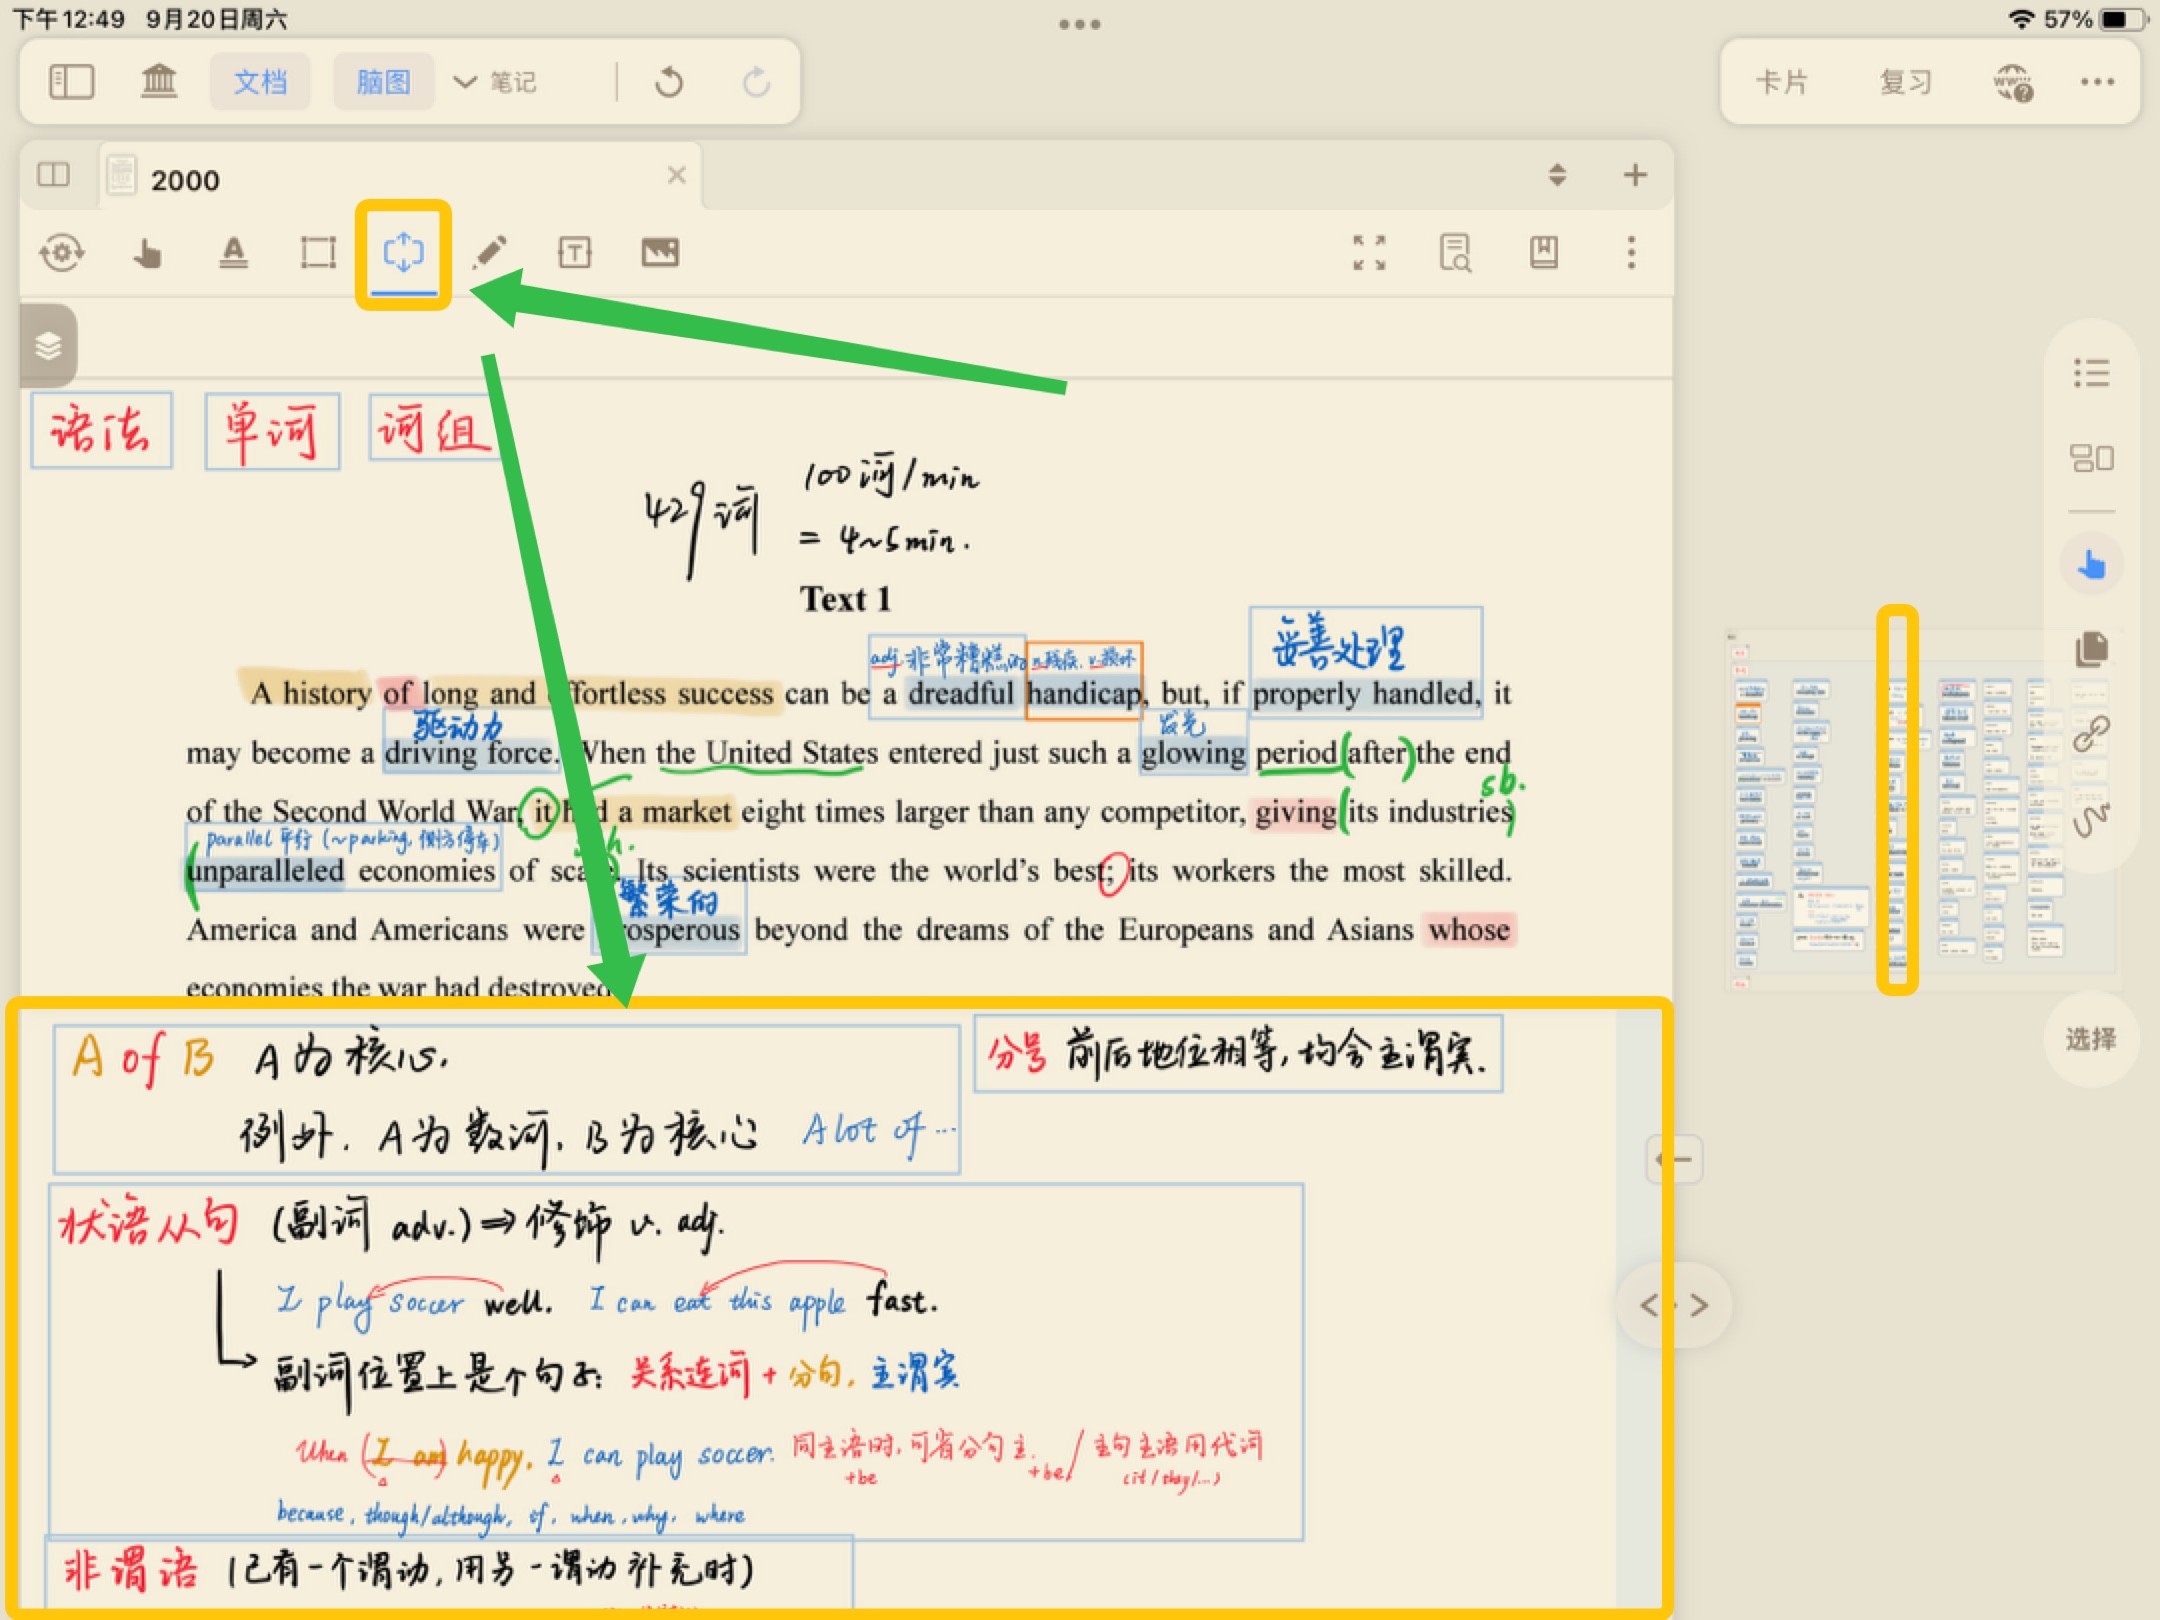 下午12:49 9月20日周六
57%
文档 脑图 笔记
卡片 复习
2000
语法 单词 词组
429词 100词/min
= 4~5min.
Text 1
妥善处理
adj.非常糟糕的 n.残疾. v.损坏
A history of long and effortless success can be a dreadful handicap, but, if properly handled, it
驱动力 发光
may become a driving force. When the United States entered just such a glowing period (after) the end
sb.
of the Second World War, it had a market eight times larger than any competitor, giving (its industries)
parallel 平行 (~parking, 侧方停车)
(unparalleled economies of scale. Its scientists were the world's best; its workers the most skilled.
繁荣的
America and Americans were prosperous beyond the dreams of the Europeans and Asians whose
economies the war had destroyed
A of B A为核心.
例外. A为数词, B为核心 A lot of …
分号 前后地位相等, 均含主谓宾.
状语从句 (副词 adv.) ⇒ 修饰 v. adj.
I play soccer well. I can eat this apple fast.
副词位置上是个句子: 关系连词 + 分句, 主谓宾
When (I am) happy, I can play soccer. 同主语时, 可省分句主.+be / 主句主语用代词
+be (it/they/...)
because, though/although, if, when, why, where
非谓语 (已有一个谓动, 用另一谓动补充时)
选择